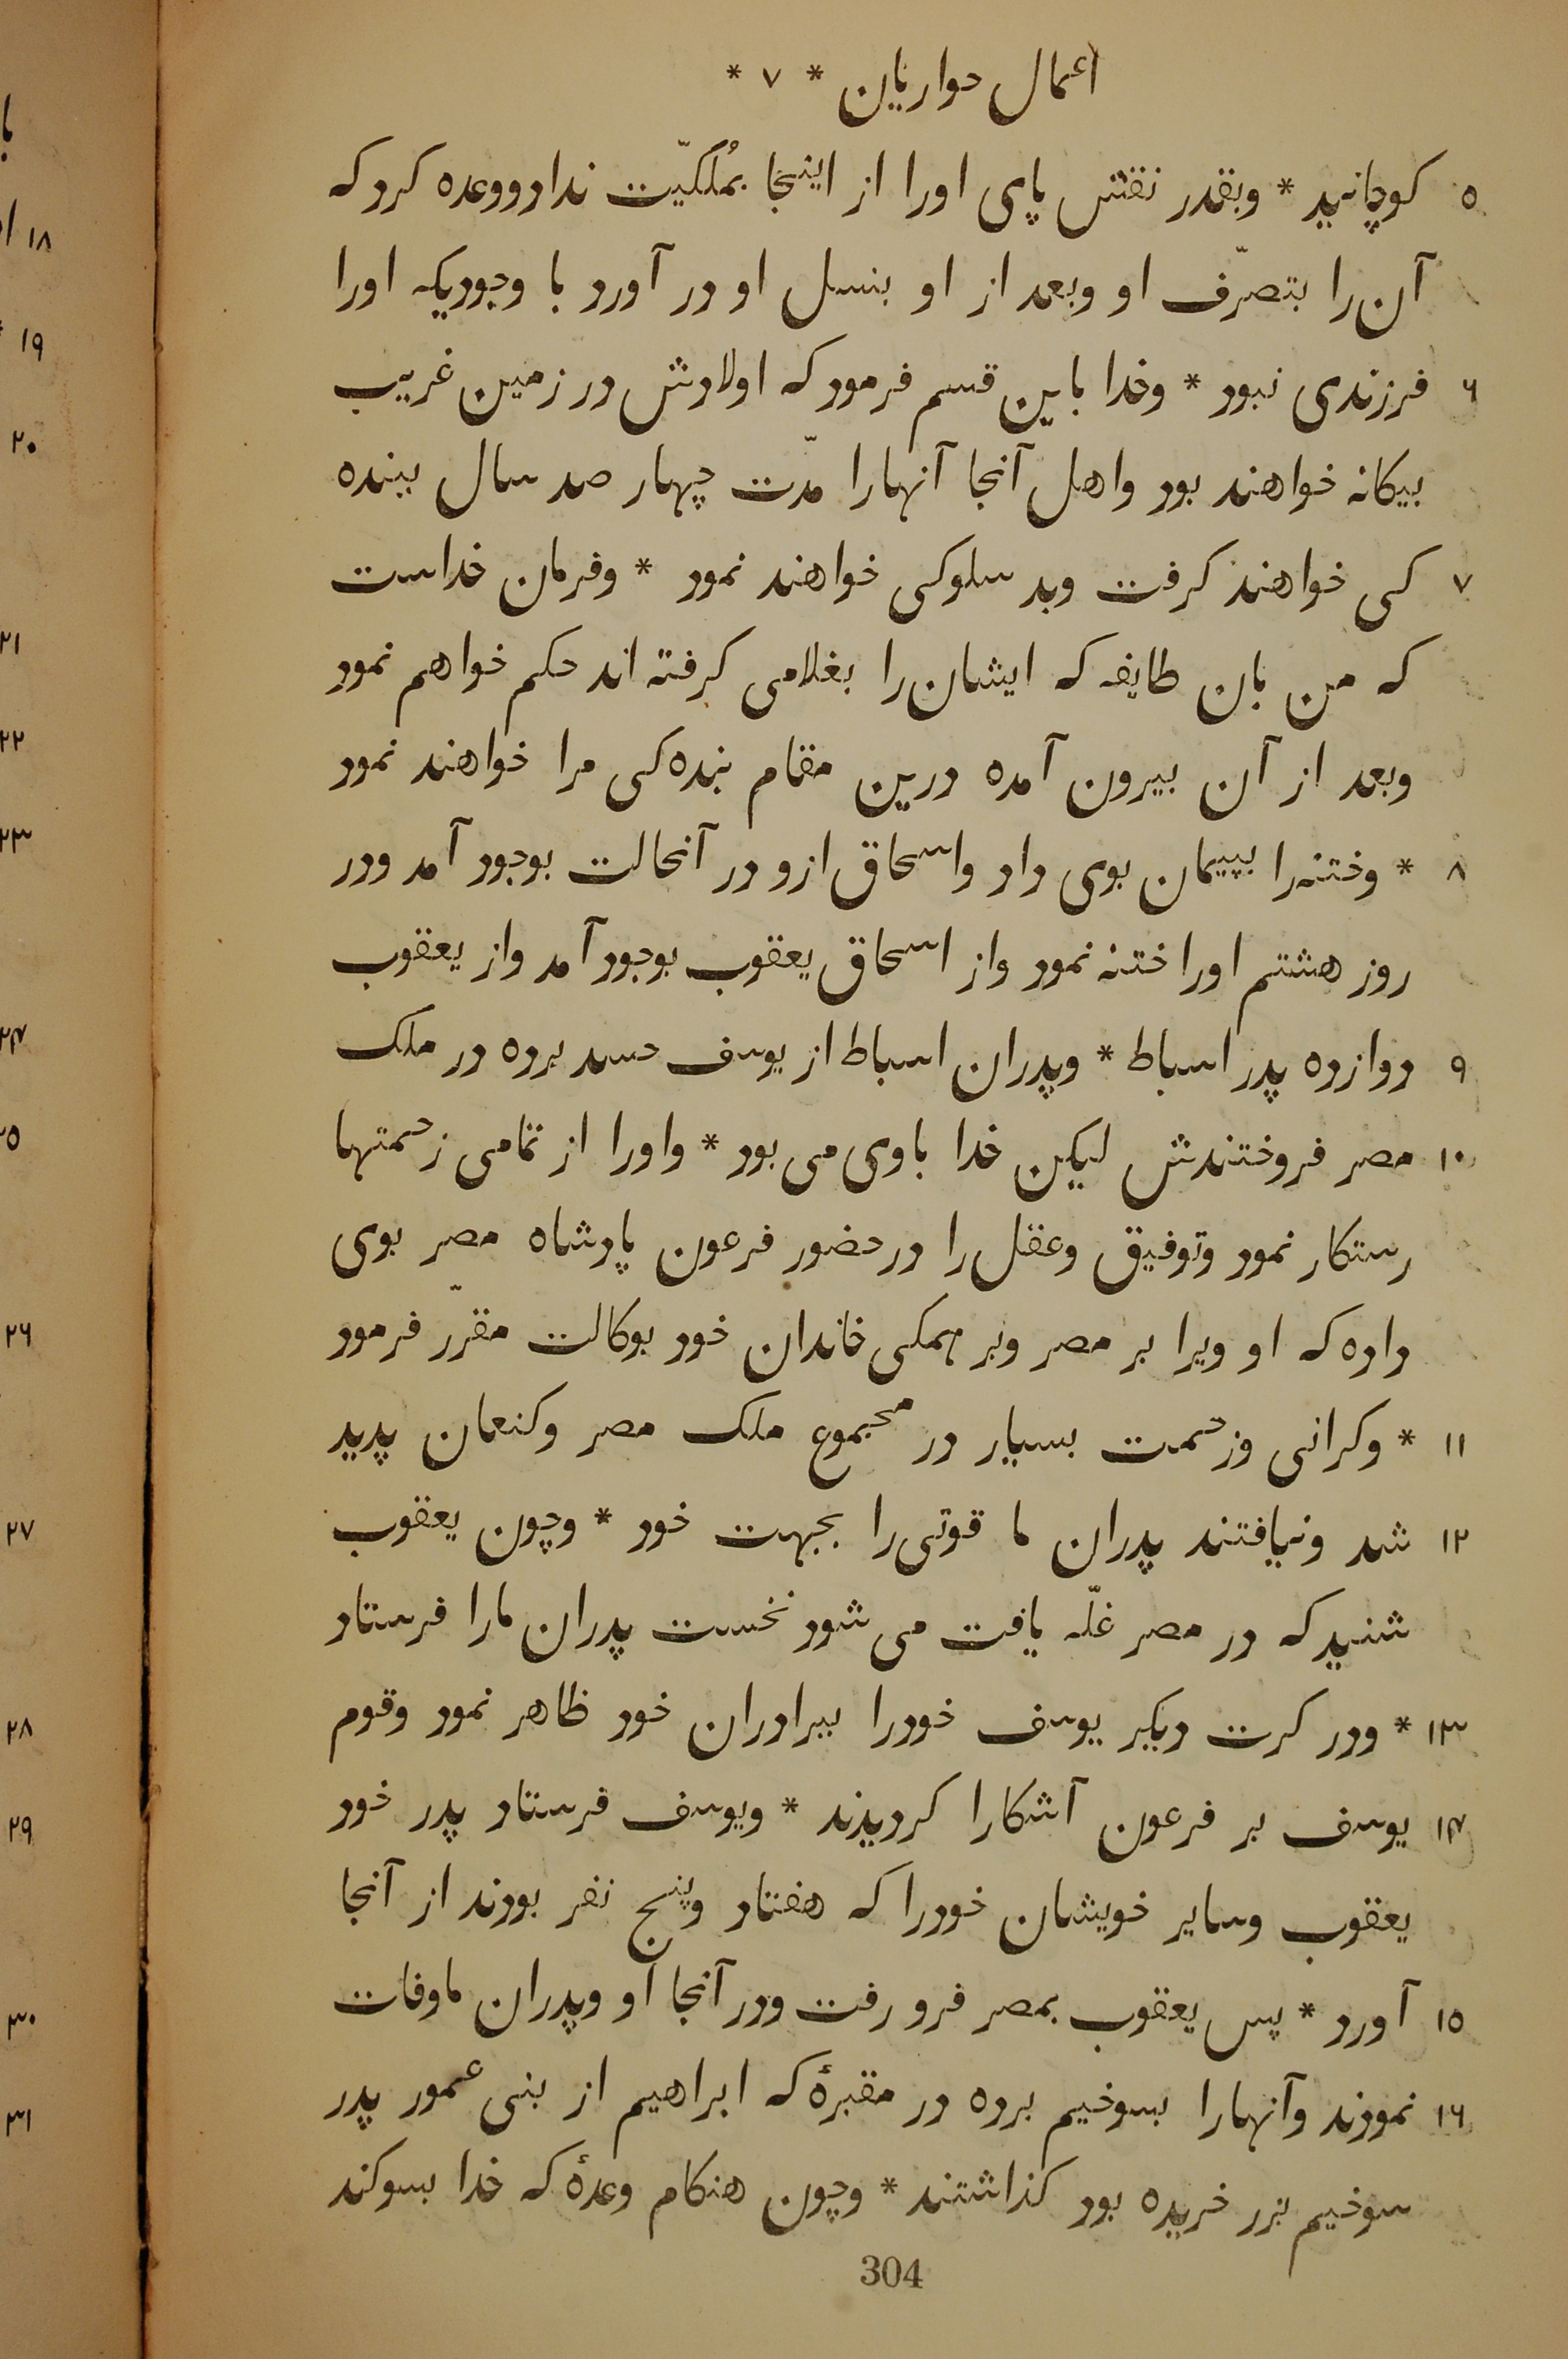 اعمال حواریان * ۷ *
۵ کوچانید * وبقدر نقش پای اورا از اینجا بمُلکیّت نداد ووعده کرد که
آن را بتصرّف او وبعد از او بنسل او در آورد با وجودیکه اورا
۶ فرزندی نبود * وخدا باین قسم فرمود که اولادش در زمین غریب
بیکانه خواهند بود واهل آنجا آنهارا مدّت چهار صد سال ببنده
۷ کی خواهند کرفت وبد سلوکی خواهند نمود * وفرمان خداست
که من بان طایفه که ایشان را بغلامی کرفته اند حکم خواهم نمود
وبعد از آن بیرون آمده درین مقام بنده کی مرا خواهند نمود
۸ * وختنه را بپیمان بوی داد واسحاق ازو در آنحالت بوجود آمد ودر
روز هشتم اورا ختنه نمود واز اسحاق یعقوب بوجود آمد واز یعقوب
۹ دوازده پدر اسباط * وپدران اسباط از یوسف حسد برده در ملک
۱۰ مصر فروختندش لیکن خدا باوی می بود * واورا از تمامی زحمتها
رستکار نمود وتوفیق وعقل را در حضور فرعون پادشاه مصر بوی
داده که او ویرا بر مصر وبر همکی خاندان خود بوکالت مقرّر فرمود
۱۱ * وکرانی وزحمت بسیار در مجموع ملک مصر وکنعان پدید
۱۲ شد ونیافتند پدران ما قوتی را بجهت خود * وچون یعقوب
شنید که در مصر غلّه یافت می شود نخست پدران مارا فرستاد
۱۳ * ودر کرت دیکر یوسف خودرا ببرادران خود ظاهر نمود وقوم
۱۴ یوسف بر فرعون آشکارا کردیدند * ویوسف فرستاد پدر خود
یعقوب وسایر خویشان خودرا که هفتاد وپنج نفر بودند از آنجا
۱۵ آورد * پس یعقوب بمصر فرو رفت ودر آنجا او وپدران ماوفات
۱۶ نمودند وآنهارا بسوخیم برده در مقبرهٔ که ابراهیم از بنی عمور پدر
سوخیم بزر خریده بود کذاشتند * وچون هنکام وعدهٔ که خدا بسوکند
304
۱۸
۱۹
۲۰
۲۱
۲۲
۲۳
۲۴
۲۶
۲۷
۲۸
۲۹
۳۰
۳۱